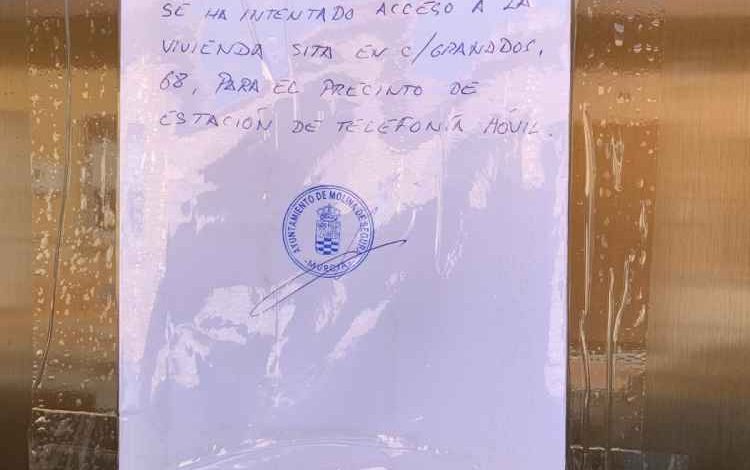 SE HA INTENTADO ACCESO A LA
VIVIENDA SITA EN C/GRANADOS,
68, PARA EL PRECINTO DE
ESTACIÓN DE TELEFONÍA MÓVIL.
AYUNTAMIENTO DE MOLINA DE SEGURA
-MURCIA-